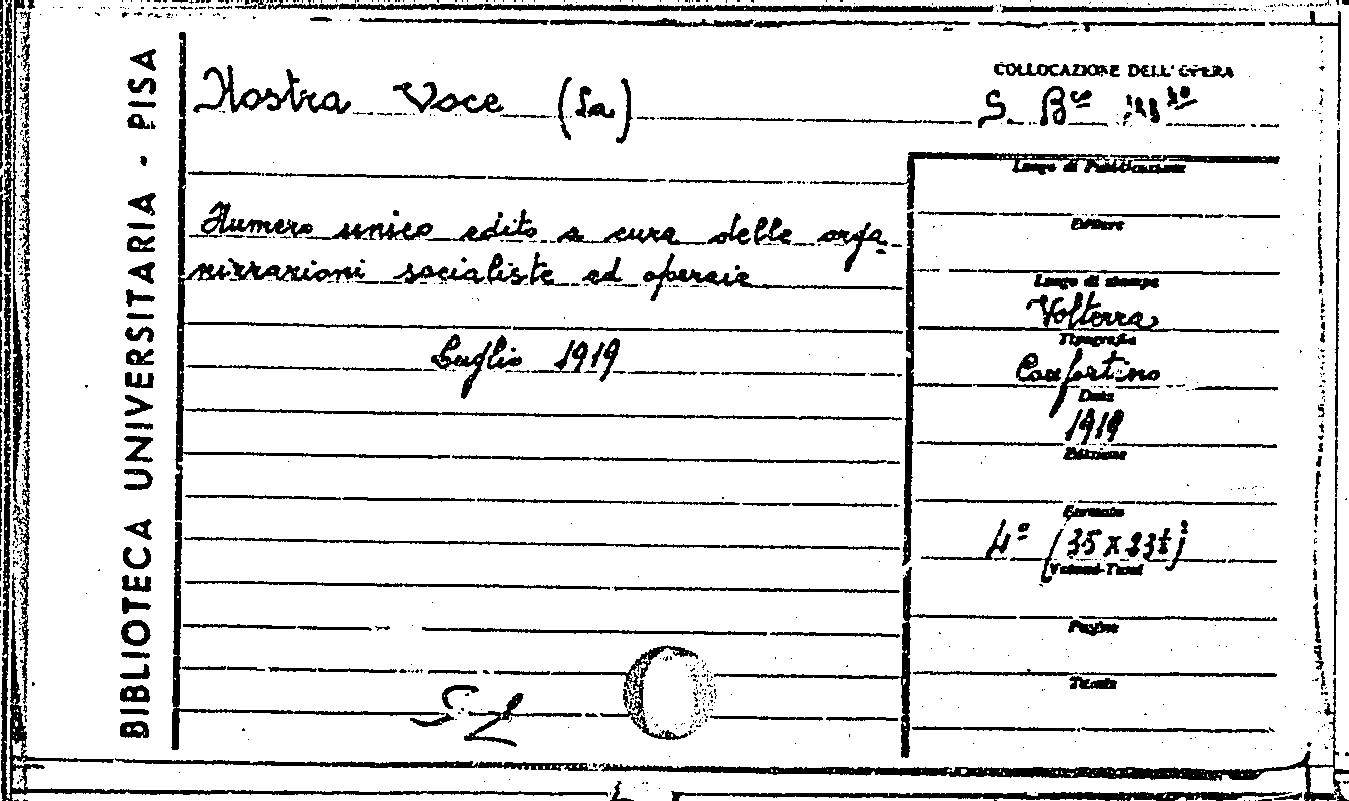 BIBLIOTECA UNIVERSITARIA - PISA
Nostra Voce (La)
COLLOCAZIONE DELL'OPERA
S. Bco
Numero unico edito a cura delle orga-
nizzazioni socialiste ed operaie
Luglio 1919
Luogo di Pubblicazione
Editore
Luogo di stampa
Volterra
Tipografia
Confortino
Data
1919
Edizione
Formato
4º (35 x 23½)
Volumi-Tomi
Pagine
Tavole